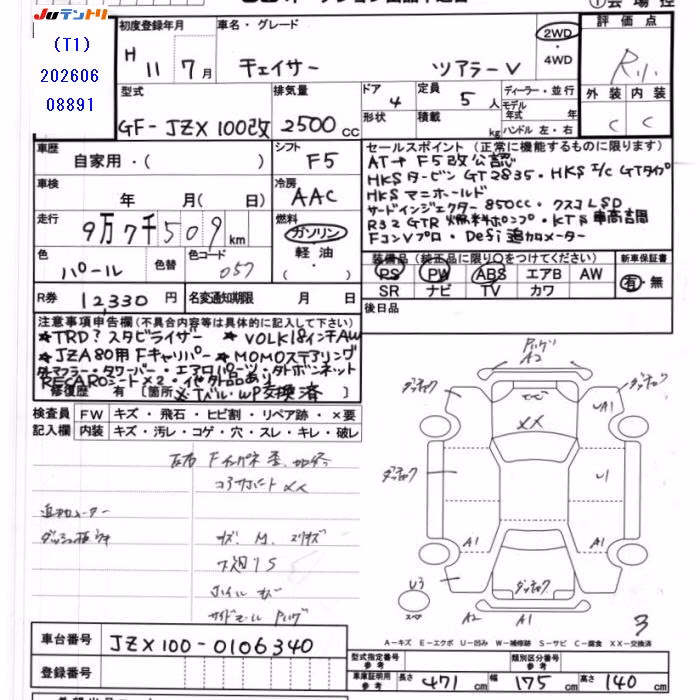 Juテントリ
(T1)
202606
08891
初度登録年月
H 11 7月
車名・グレード
チェイサー ツアラーV
2WD
・
4WD
評価点
R1
外装 内装
C C
型式
GF-JZX100改
排気量
2500cc
ドア
4
形状
定員
5人
積載
kg
ディーラー・並行
モデル
年式 年
ハンドル 左・右
車歴
自家用・( )
シフト
F5
車検
年 月( 日)
冷房
AAC
走行
9万7千509km
燃料
ガソリン
軽油
・
( )
色
パール
色替
色コード
057
R券 12,330円
名変通知期限 月 日
セールスポイント(正常に機能するものに限ります)
AT→F5改公認
HKSタービンGT2835・HKS I/C GTタイプ
HKSマニホールド
サードインジェクター850cc・クスコLSD
R32 GTR 燃料ポンプ・KTS車高調
FコンVプロ・Defi追加メーター
装備品(純正品に限り○をつけてください)
PS PW ABS エアB AW
SR ナビ TV カワ
新車保証書
有・無
後日品
注意事項申告欄(不具合内容等は具体的に記入して下さい)
★TRD?スタビライザー ★VOLK18インチAW
★JZA80用Fキャリパー ★MOMOステアリング
タワーバー・エアロパーツ・ダトボンネット
RECAROシート×2・他社外品あり
修復歴 有 [箇所 交換済
検査員 FW キズ・飛石・ヒビ割・リペア跡・×要
記入欄 内装 キズ・汚レ・コゲ・穴・スレ・キレ・破レ
左右Fインパネ歪、加修
コアサポートXX
追加メーター
ダッシュ板ウキ
下廻1S
ホイールキズ
A2
A1
XX
UA1
U1
A1
A1
U3
スペア
A2
A1
3
A-キズ E-エクボ U-凹み W-補修跡 S-サビ C-腐食 XX-交換済
車台番号 JZX100-0106340
登録番号
型式指定番号
参考
類別区分番号
参考
車庫証明用
参考
長さ 471cm 幅 175cm 高さ 140cm